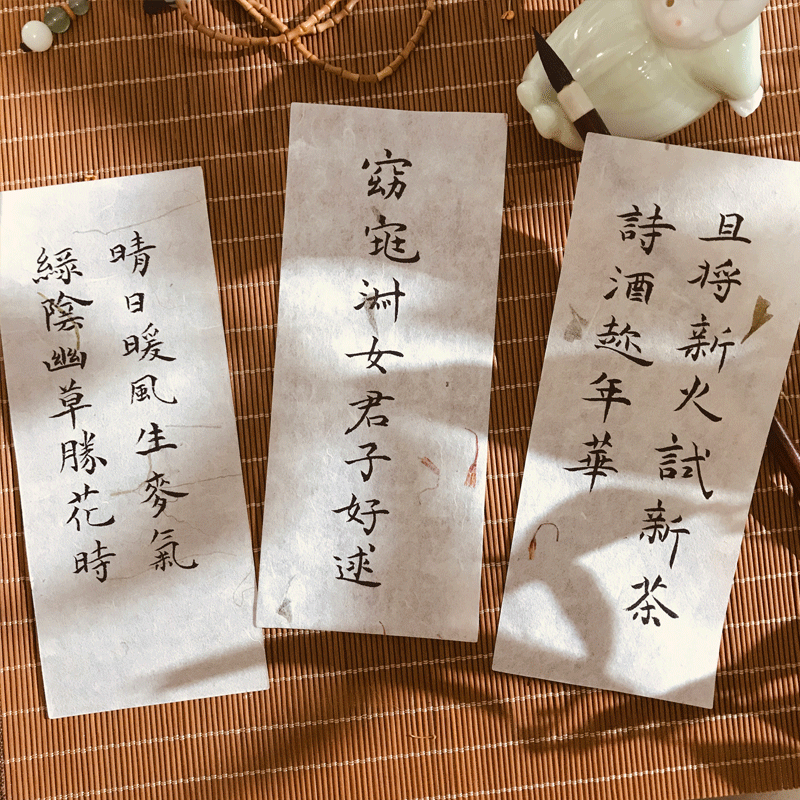 晴日暖風生麥氣
綠陰幽草勝花時
窈窕淑女君子好逑
且將新火試新茶
詩酒趁年華